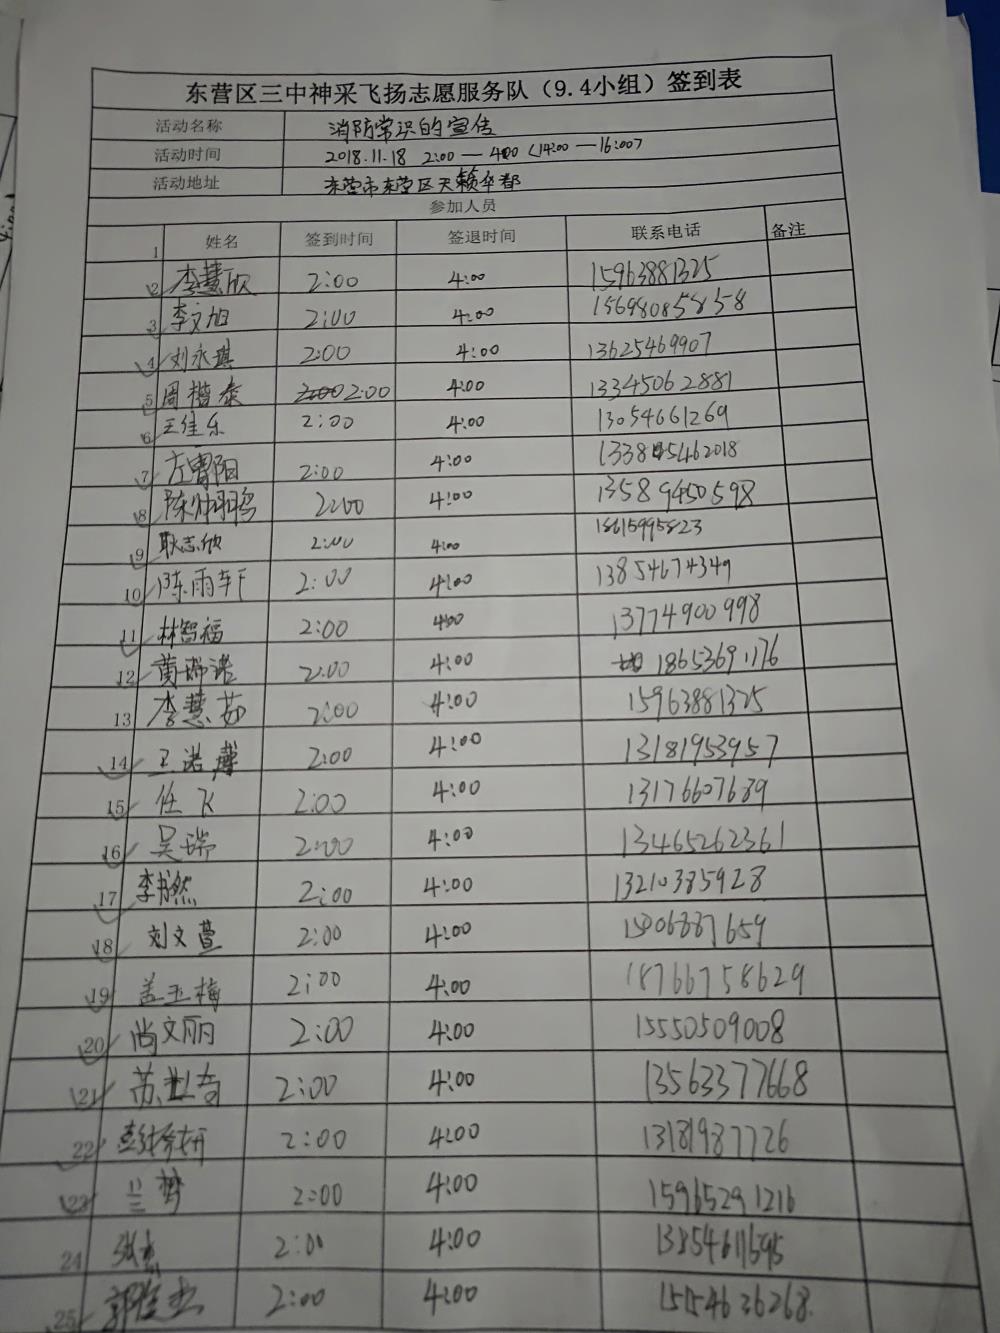 东营区三中神采飞扬志愿服务队（9.4小组）签到表
活动名称 消防常识的宣传
活动时间 2018.11.18 2:00—4:00（14:00—16:00）
活动地址 东营市东营区天籁华都
参加人员
1 姓名 签到时间 签退时间 联系电话 备注
2 李慧欣 2:00 4:00 15963881325
3 李文旭 2:00 4:00 15698085858
4 刘永琪 2:00 4:00 13625469907
5 周楷泰 2:00 4:00 13345062881
6 王佳乐 2:00 4:00 13054661269
7 左阳 2:00 4:00
8 陈 2:00 4:00 13589450598
9 耿志欣 2:00 4:00 18615995823
10 陈雨轩 2:00 4:00 13854674349
11 林智福 2:00 4:00 13774900998
12 黄瑞诺 2:00 4:00 18653691176
13 李慧茹 2:00 4:00 15963881325
14 王诺 2:00 4:00 13181953957
15 任飞 2:00 4:00 13176607689
16 吴瑞 2:00 4:00 13465262361
17 李然 2:00 4:00 13210385928
18 刘文萱 2:00 4:00
19 盖玉梅 2:00 4:00 18766758629
20 尚文丽 2:00 4:00 15550509008
21 苏 2:00 4:00 13563377668
22 彭 2:00 4:00 13181987726
23 梦 2:00 4:00 15965291216
24 张 2:00 4:00
25 郭 2:00 4:00